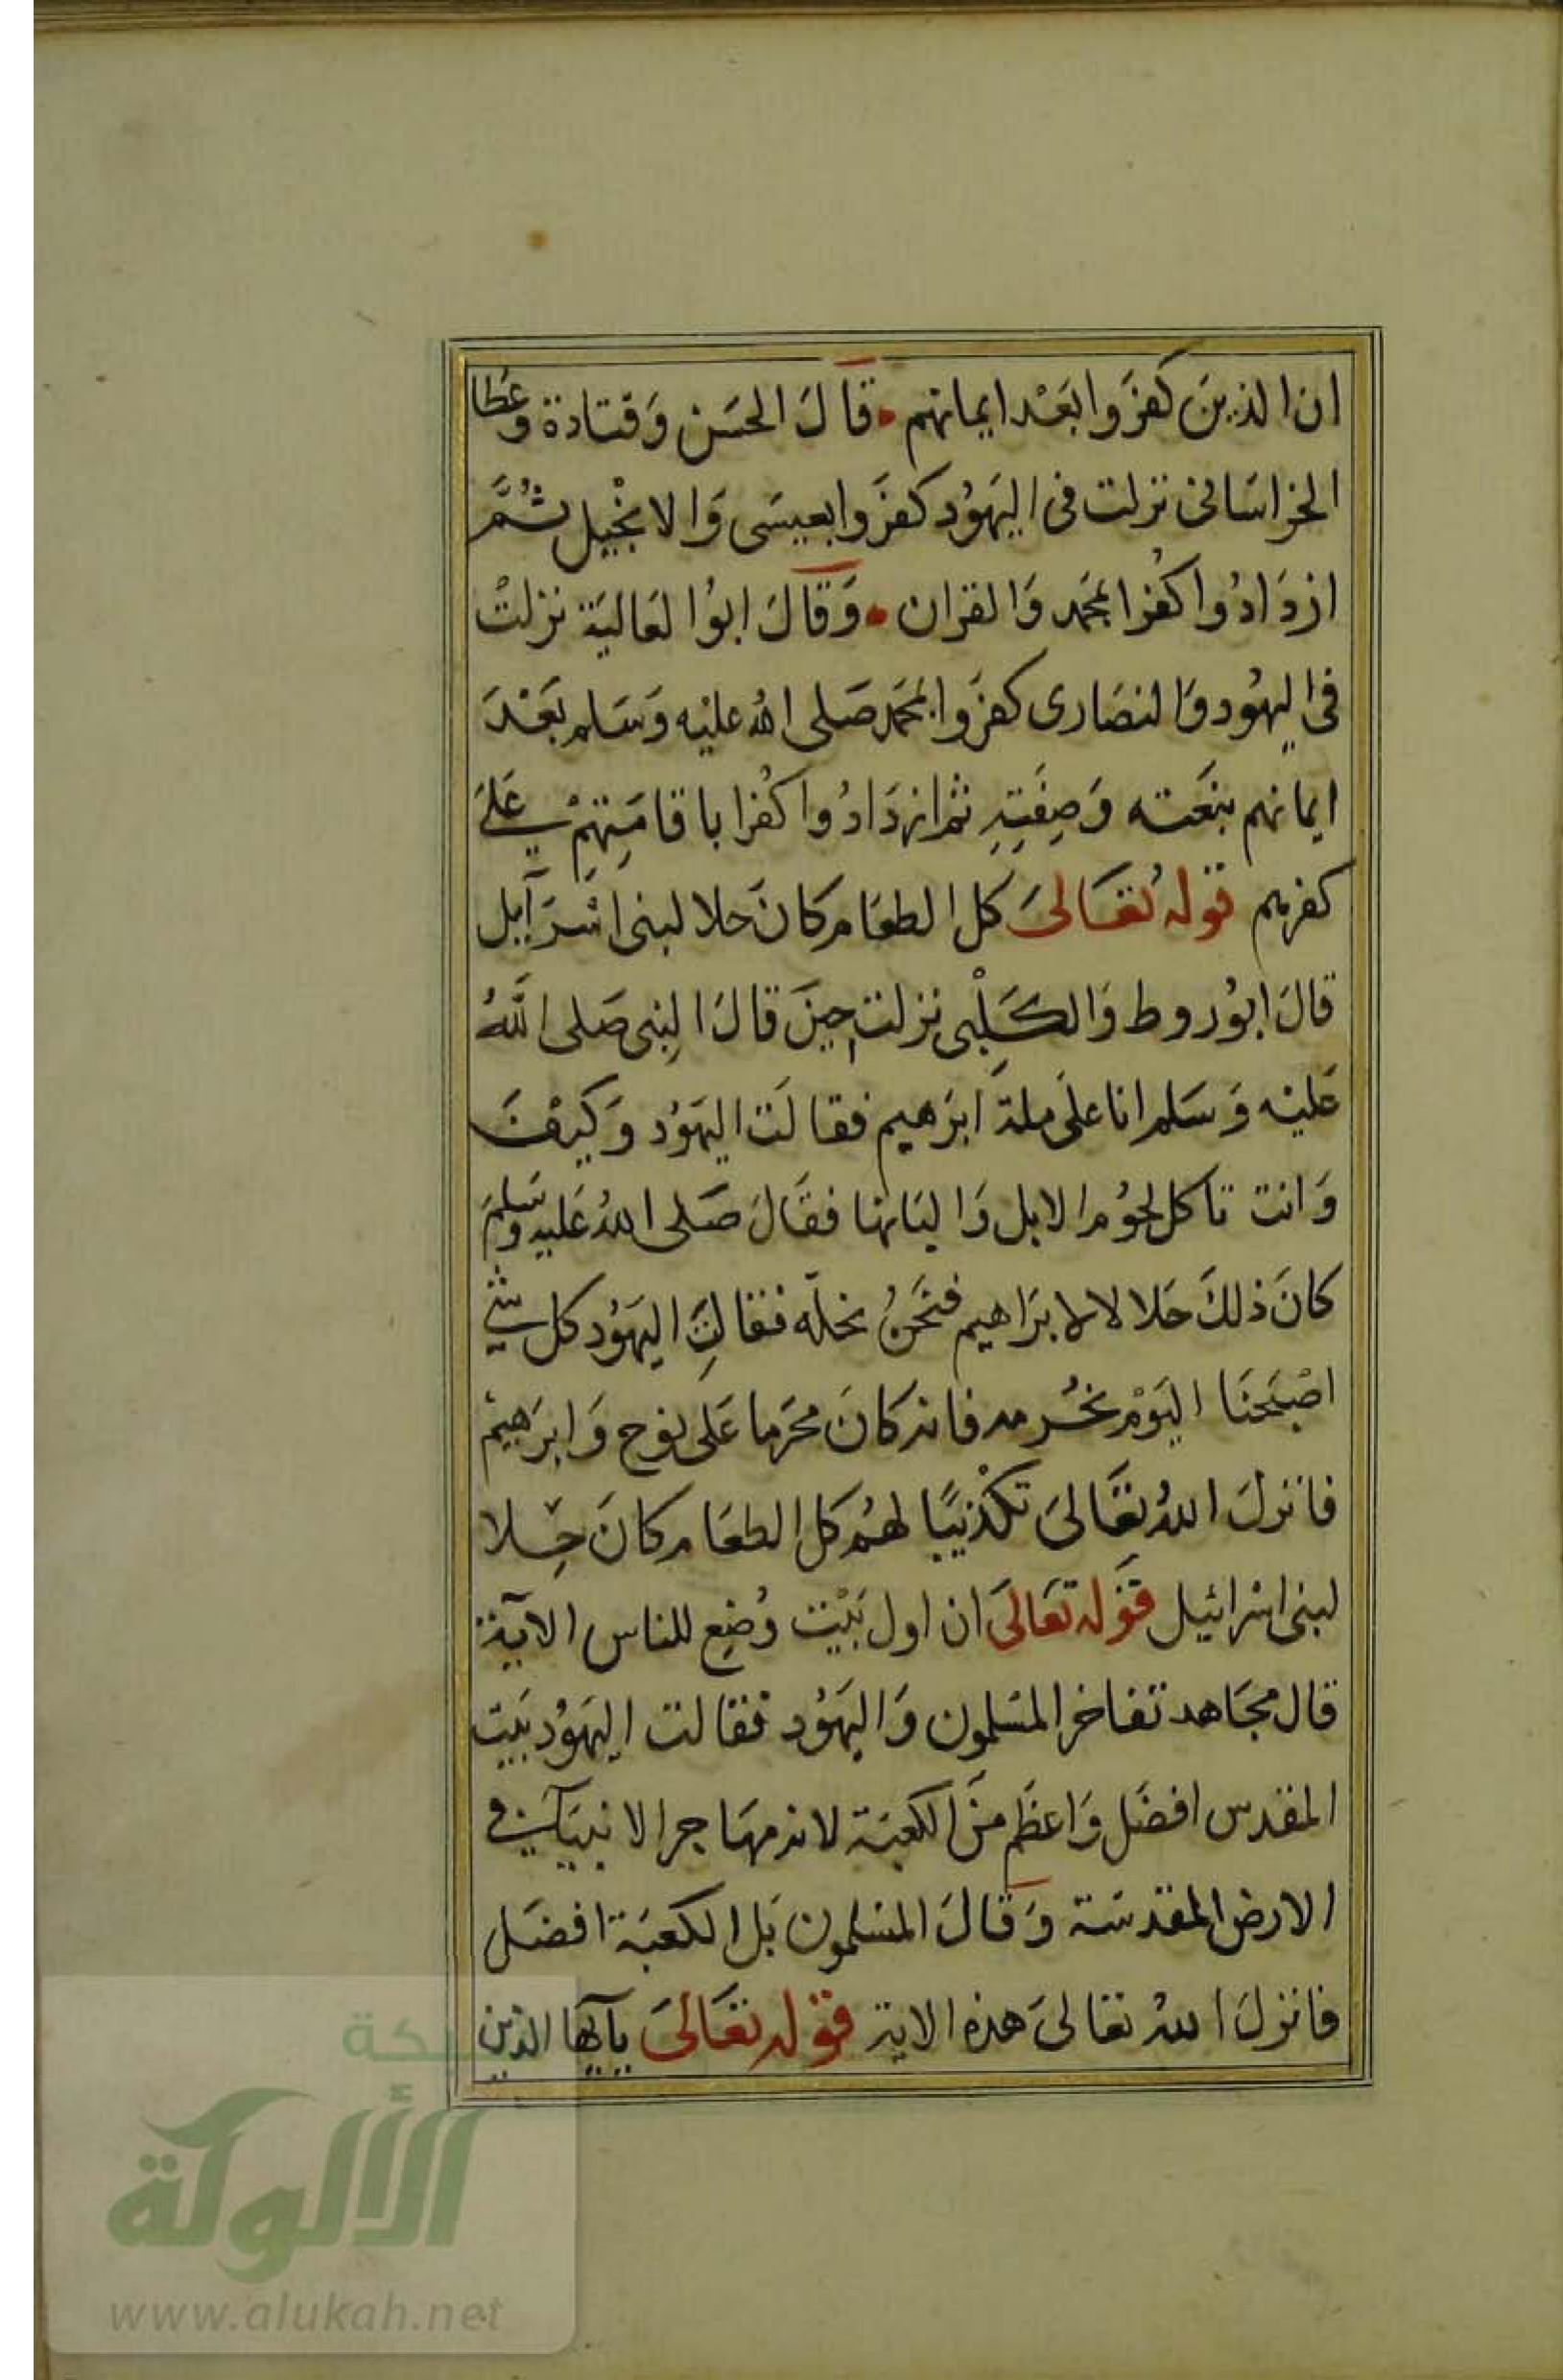 ان الذين كفَروا بَعْد ايمانهم ۰ قَالَ الحسَن وَقتادة وعَطا
الخراسَانى نزلت فى اليهَوُد كفَروا بعيسَى وَالانجْيل ثُمَّ
ازدَادُوا كفُرا بمحَمد وَالقران ۰ وَقَالَ ابوُ العَاليَة نزلتْ
فى اليهُود وَالنصَارى كفرَوا بمحَمد صَلى اللهُ عليْه وَسَلم بَعْدَ
ايمانهم بنَعته وَصِفَتِهِ ثم ازدَادُوا كفُرا باقامَتِهِمْ عَلىَ
كفرهم قوله تُعَالىَ كل الطعَام كانَ حلا لبنى اسْرَآيل
قالَ ابوُ روط وَالكَلْبِى نزلت حِينَ قالَ النِبى صَلى اللَّهُ
عَليْه وَسَلم انا علَى ملة ابرَهيم فقالَت اليهَوُد وَكيْفَ
وَانت تاكل لحوُم الابل وَالبَانها فقَالَ صَلى اللهُ عَليهِ وسَلمَ
كانَ ذلكَ حَلالا لابرَاهيم فنَحَنُ نحلّه فقالتِ اليهَوُد كل شئ
اصْبَحنَا اليَوْم نحُرمه فانه كانَ محَرما عَلى نوح وَابرَهيمْ
فانزلَ اللهُ تعَالىَ تكْذيبًا لهُم كل الطعَام كانَ حِلا
لبنى اسْرائيل قَوله تعَالىَ ان اول بَيْت وُضِع للناس الآيَة
قال مجَاهد تفاخر المسْلمون وَاليهَوُد فقالت اليهَوُد بَيت
المقدس افضَل وَاعظَم منَ الكعبَة لانه مهَاجر الانبيَآء فى
الارض المقدسَة وَقَالَ المسْلمون بَل الكعبَة افضَل
فانزلَ اللهُ تعالىَ هذه الاية قوله تعَالىَ يآيّهَا الذين
شبكة
الألوكة
www.alukah.net